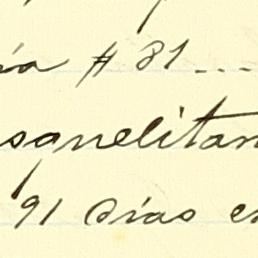 ía # 81...
squelitan
91 días en